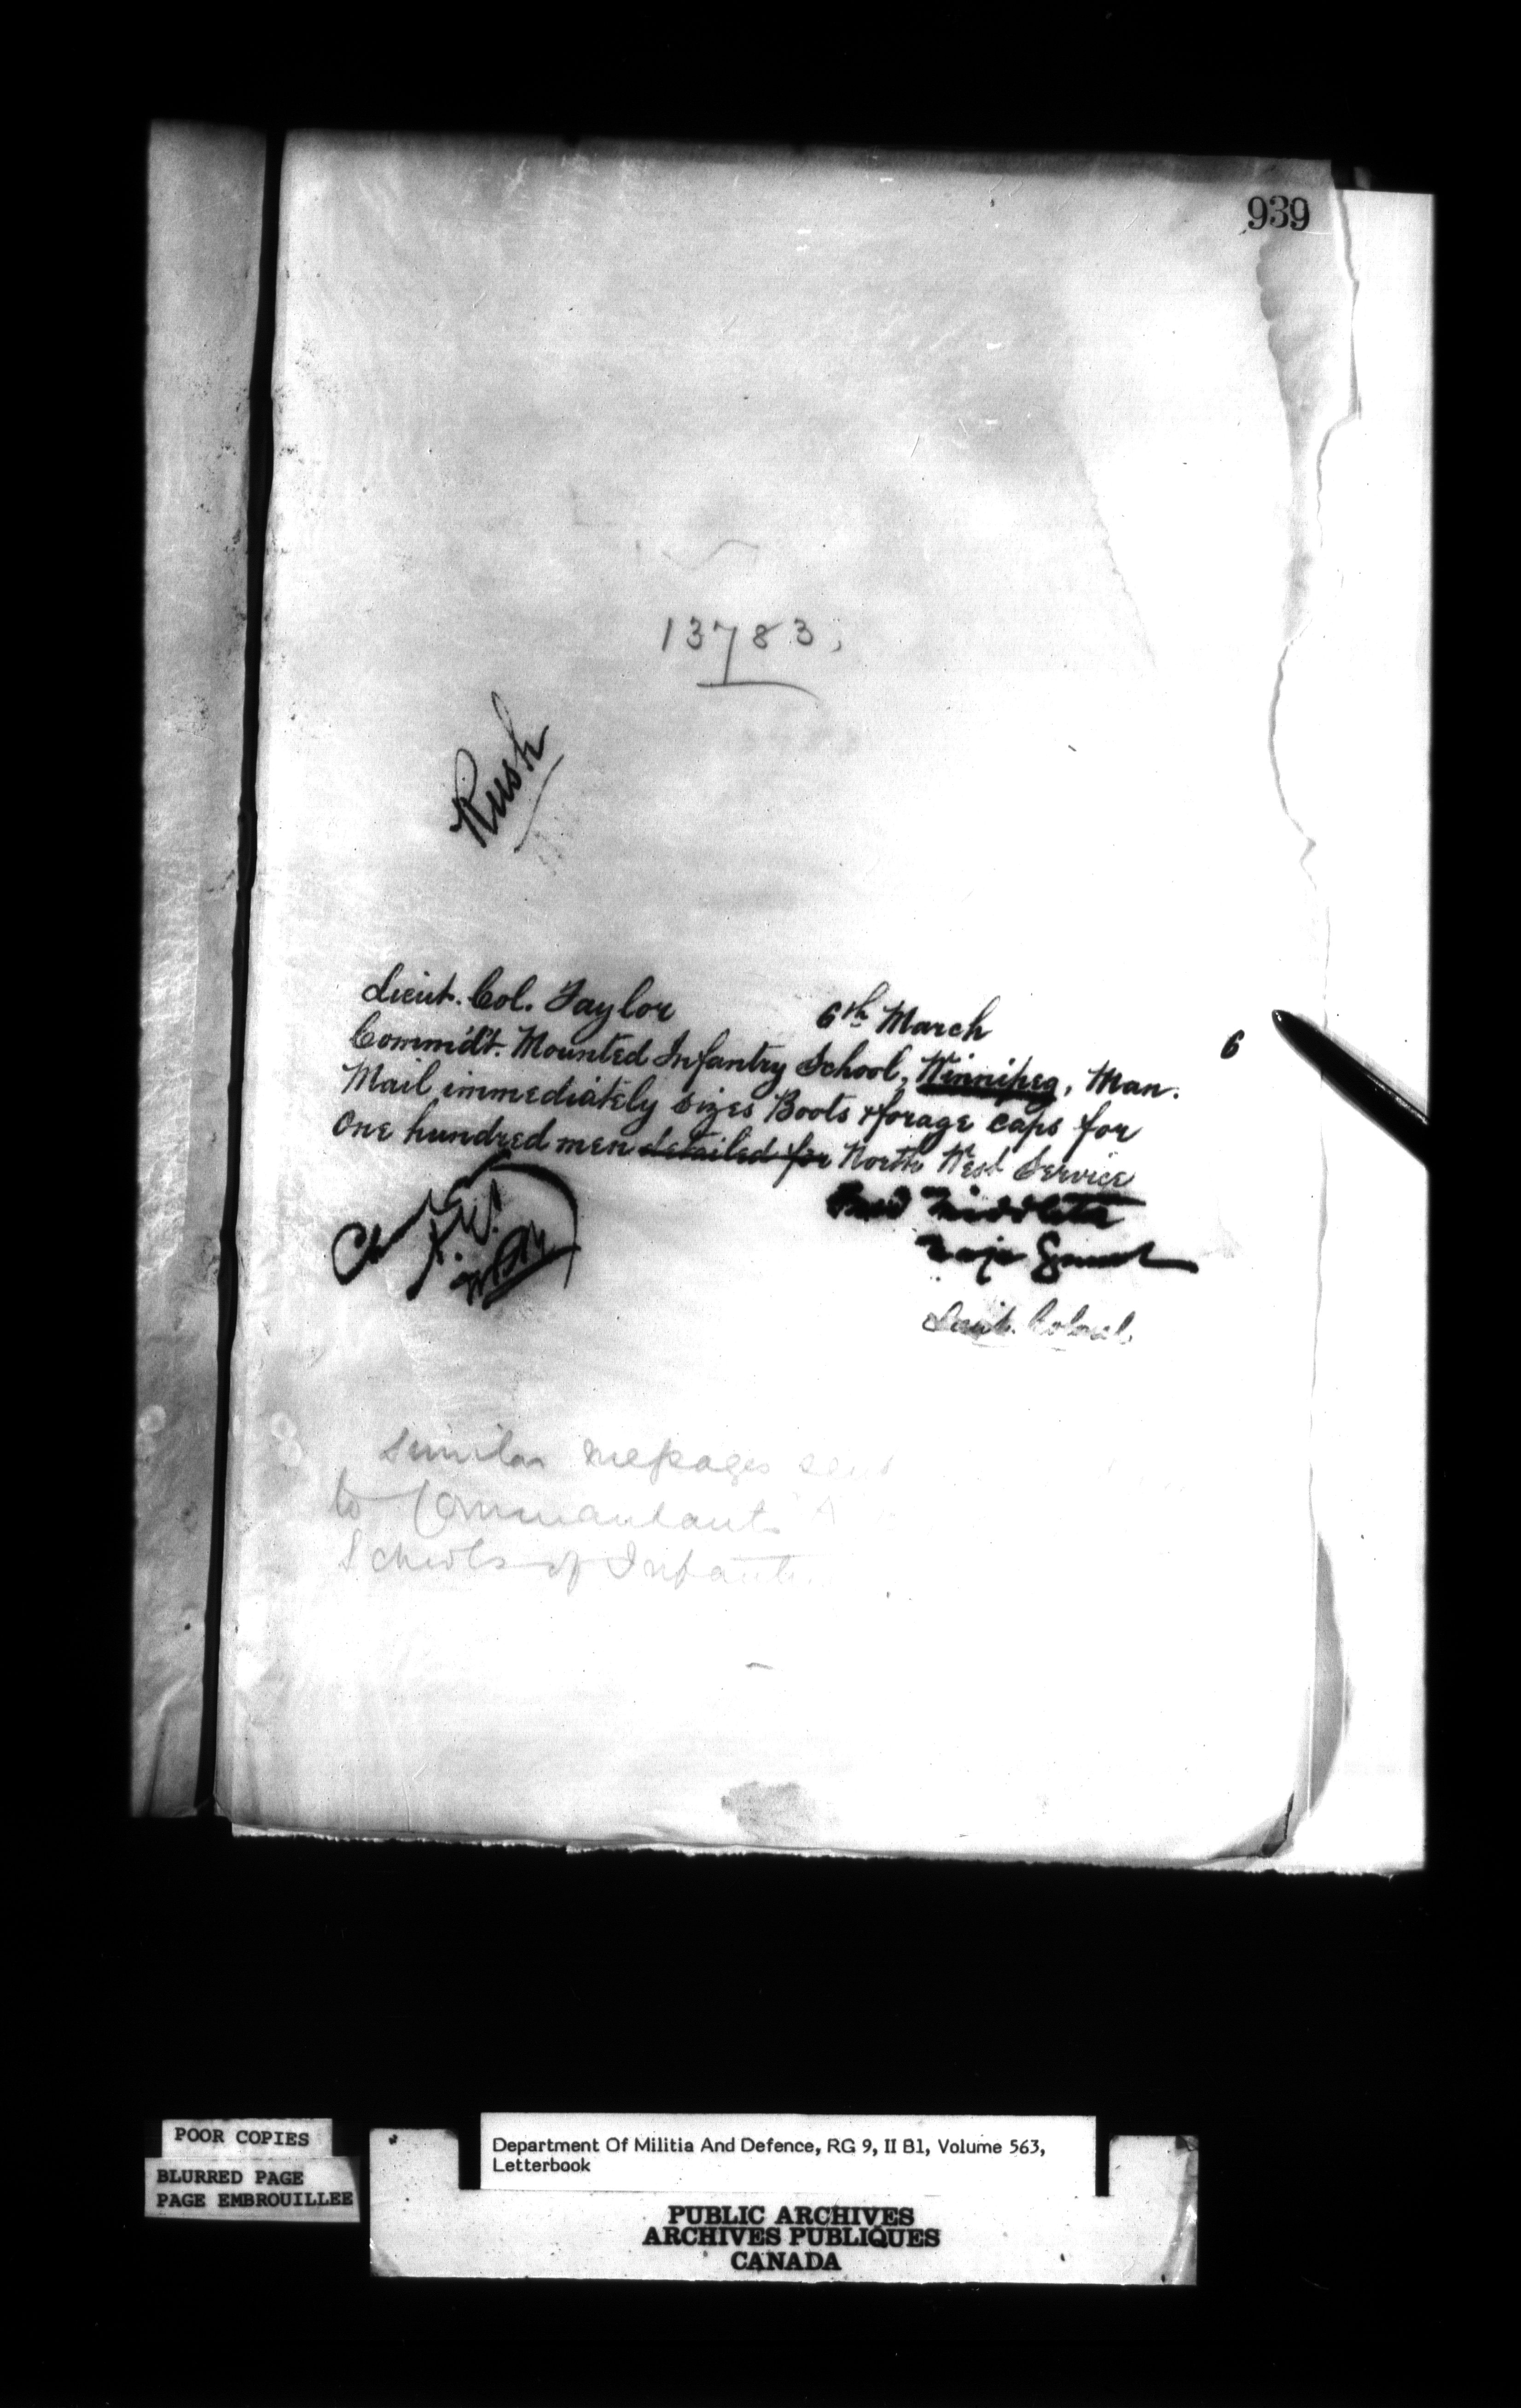 939
13783,
Rush
Lieut. Col. Taylor
6th March
6
Commd't. Mounted Infantry School, Winnipeg, Man.
Mail immediately sizes Boots & forage caps for
One hundred men detailed for North West Service
Fred Middleton
Major General
Lieut. Colonel.
Similar messages sent
to Commandants A
Schools of Infantry
POOR COPIES
BLURRED PAGE
PAGE EMBROUILLEE
Department Of Militia And Defence, RG 9, II B1, Volume 563,
Letterbook
PUBLIC ARCHIVES
ARCHIVES PUBLIQUES
CANADA